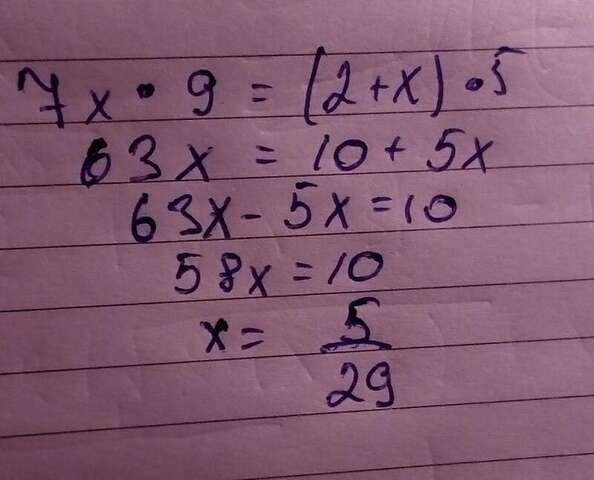 7x • 9 = (2+x) • 5
63x = 10 + 5x
63x - 5x = 10
58x = 10
x = 5/29